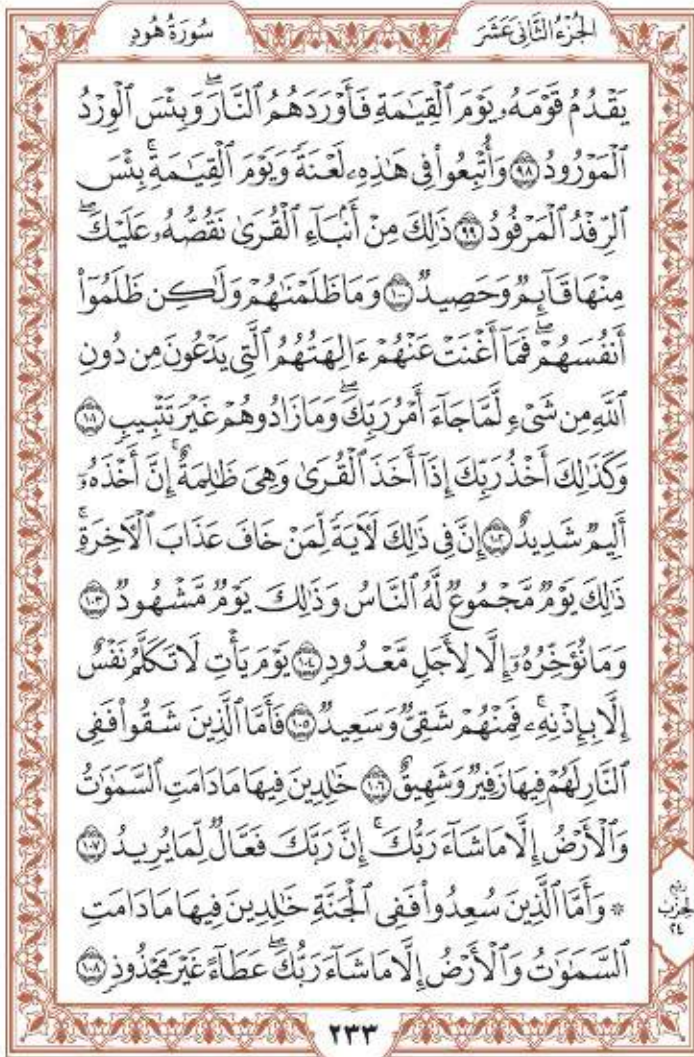 سُورَةُ هُودٍ
الجُزْءُ الثَّانِيَ عَشَرَ
يَقْدُمُ قَوْمَهُۥ يَوْمَ ٱلْقِيَٰمَةِ فَأَوْرَدَهُمُ ٱلنَّارَۖ وَبِئْسَ ٱلْوِرْدُ
ٱلْمَوْرُودُ ٩٨ وَأُتْبِعُوا۟ فِى هَٰذِهِۦ لَعْنَةً وَيَوْمَ ٱلْقِيَٰمَةِۚ بِئْسَ
ٱلرِّفْدُ ٱلْمَرْفُودُ ٩٩ ذَٰلِكَ مِنْ أَنۢبَآءِ ٱلْقُرَىٰ نَقُصُّهُۥ عَلَيْكَۖ
مِنْهَا قَآئِمٌ وَحَصِيدٌ ١٠٠ وَمَا ظَلَمْنَٰهُمْ وَلَٰكِن ظَلَمُوٓا۟
أَنفُسَهُمْۖ فَمَآ أَغْنَتْ عَنْهُمْ ءَالِهَتُهُمُ ٱلَّتِى يَدْعُونَ مِن دُونِ
ٱللَّهِ مِن شَىْءٍ لَّمَّا جَآءَ أَمْرُ رَبِّكَۖ وَمَا زَادُوهُمْ غَيْرَ تَتْبِيبٍ ١٠١
وَكَذَٰلِكَ أَخْذُ رَبِّكَ إِذَآ أَخَذَ ٱلْقُرَىٰ وَهِىَ ظَٰلِمَةٌۚ إِنَّ أَخْذَهُۥٓ
أَلِيمٌ شَدِيدٌ ١٠٢ إِنَّ فِى ذَٰلِكَ لَءَايَةً لِّمَنْ خَافَ عَذَابَ ٱلْءَاخِرَةِۚ
ذَٰلِكَ يَوْمٌ مَّجْمُوعٌ لَّهُ ٱلنَّاسُ وَذَٰلِكَ يَوْمٌ مَّشْهُودٌ ١٠٣
وَمَا نُؤَخِّرُهُۥٓ إِلَّا لِأَجَلٍ مَّعْدُودٍ ١٠٤ يَوْمَ يَأْتِ لَا تَكَلَّمُ نَفْسٌ
إِلَّا بِإِذْنِهِۦۚ فَمِنْهُمْ شَقِىٌّ وَسَعِيدٌ ١٠٥ فَأَمَّا ٱلَّذِينَ شَقُوا۟ فَفِى
ٱلنَّارِ لَهُمْ فِيهَا زَفِيرٌ وَشَهِيقٌ ١٠٦ خَٰلِدِينَ فِيهَا مَا دَامَتِ ٱلسَّمَٰوَٰتُ
وَٱلْأَرْضُ إِلَّا مَا شَآءَ رَبُّكَۚ إِنَّ رَبَّكَ فَعَّالٌ لِّمَا يُرِيدُ ١٠٧
۞ وَأَمَّا ٱلَّذِينَ سُعِدُوا۟ فَفِى ٱلْجَنَّةِ خَٰلِدِينَ فِيهَا مَا دَامَتِ
ٱلسَّمَٰوَٰتُ وَٱلْأَرْضُ إِلَّا مَا شَآءَ رَبُّكَۖ عَطَآءً غَيْرَ مَجْذُوذٍ ١٠٨
رُبْع
الحِزْب
٢٤
٢٣٣